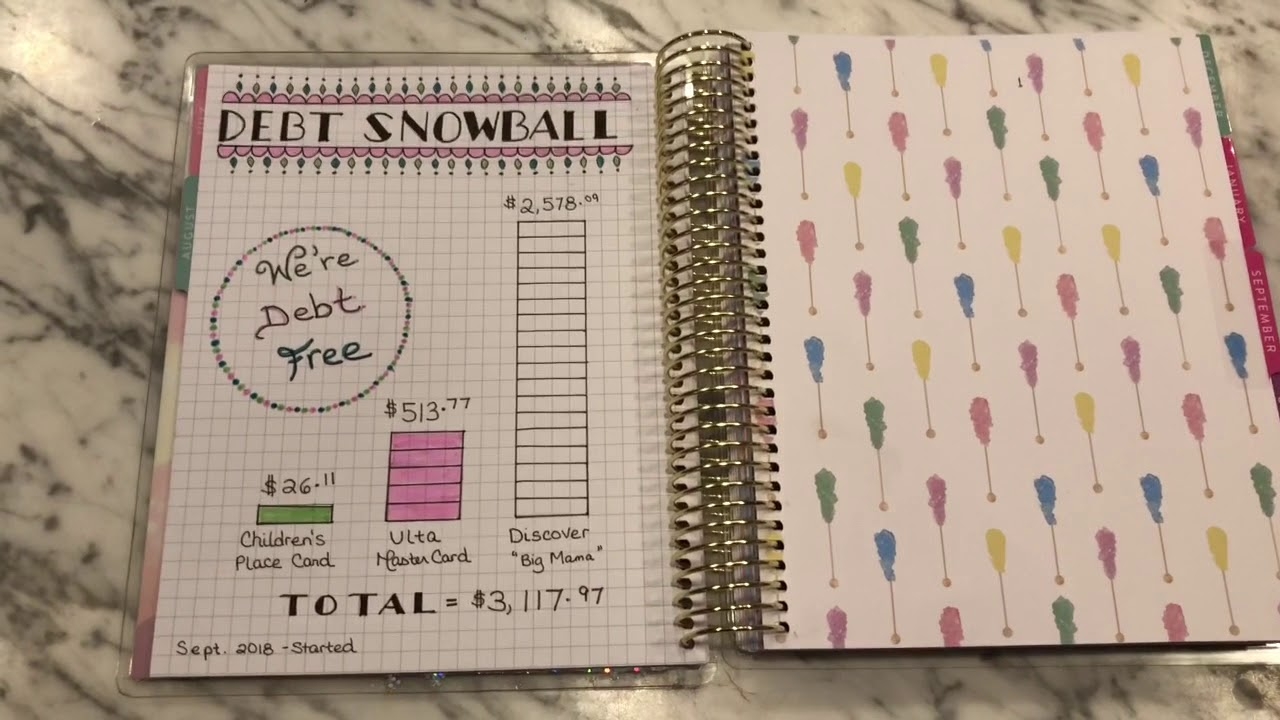 DEBT SNOWBALL
$2,578.09
We're
Debt
Free
$513.77
$26.11
Children's
Place Card
Ulta
MasterCard
Discover
"Big Mama"
TOTAL = $3,117.97
Sept. 2018 - Started
AUGUST
DECEMBER
JANUARY
SEPTEMBER